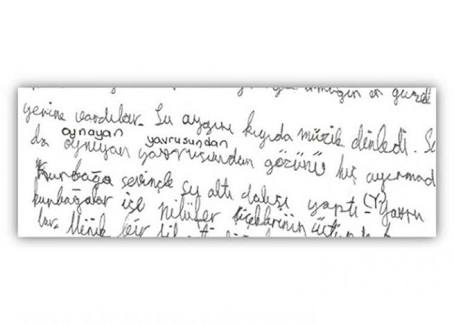 ırmağın en güzel
yerine vardılar. Su aygırı kıyıda müzik dinledi. Su
oynayan yavrusundan
da oynuyan yavrusundan gözünü hiç ayırmad
Kurbağa sevinçle su altı dalışı yaptı. (Y)avru
kurbağalar ise nilüfer çiçeklerinin üstünde
bir